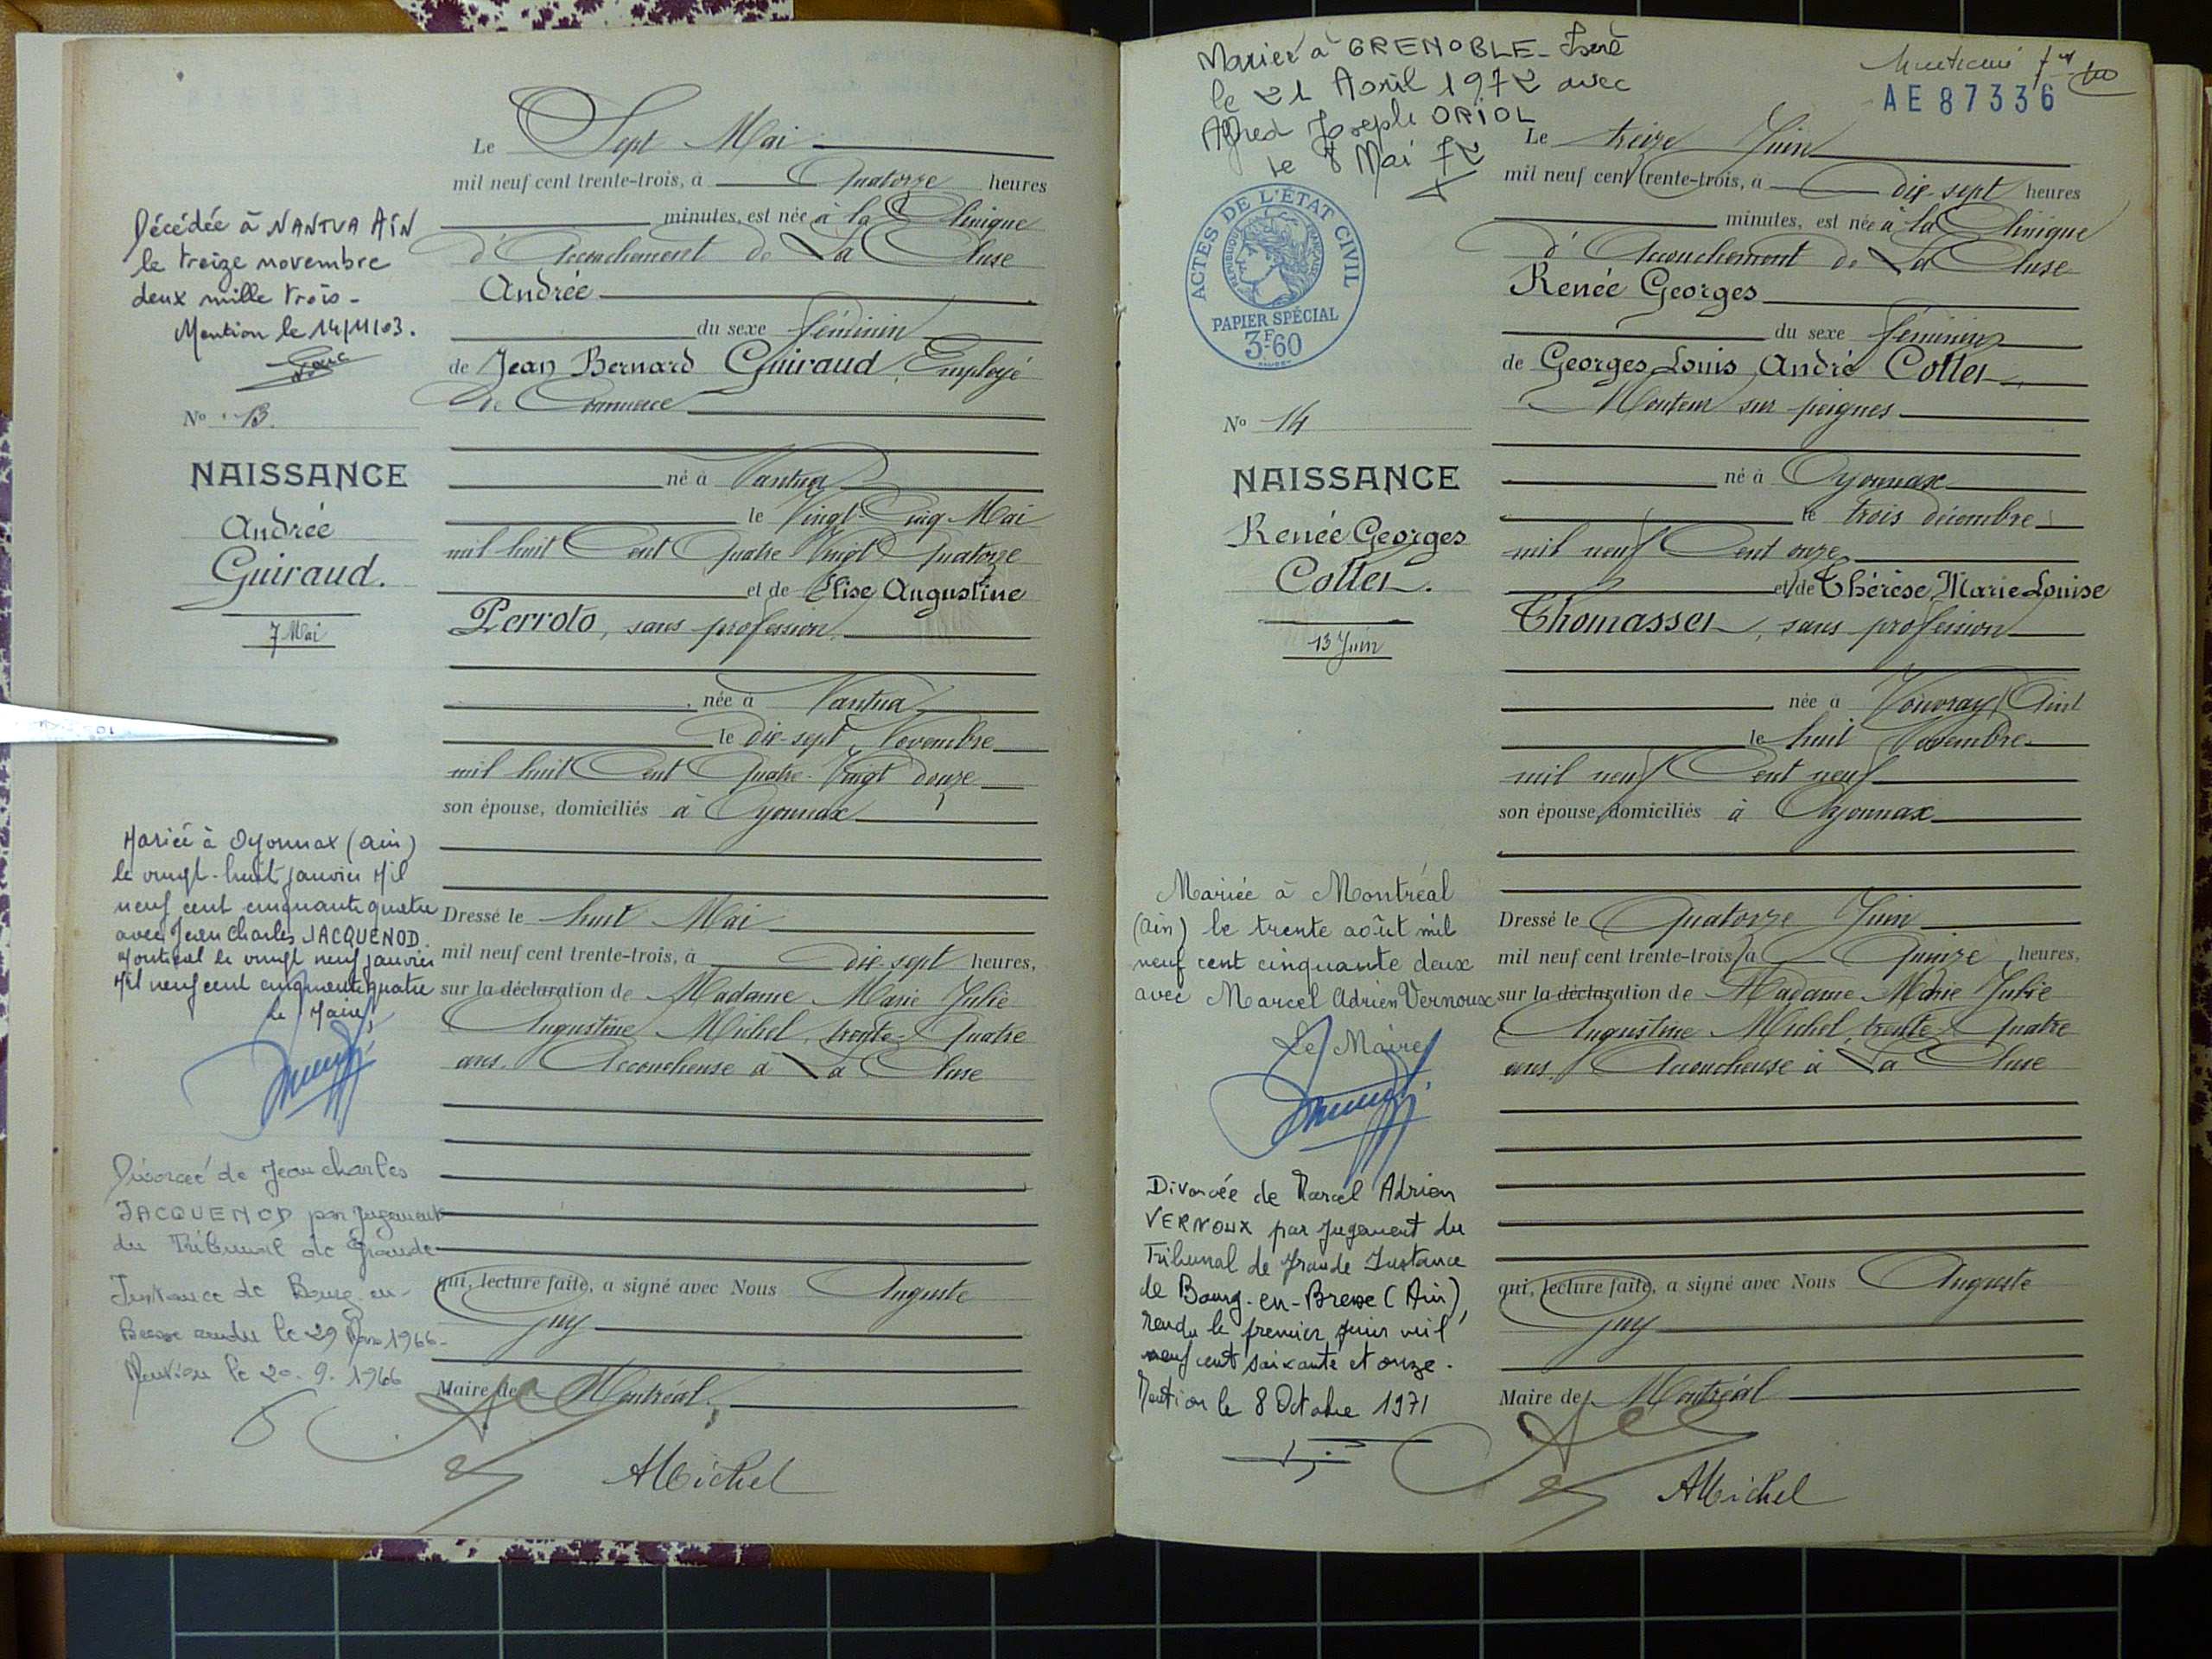 Le Sept Mai
mil neuf cent trente-trois, à Quatorze heures
minutes, est née à la Clinique
d'Accouchement de La Cluse
Andrée
du sexe féminin
de Jean Bernard Guiraud, Employé
de Commerce
né à Nantua
le Vingt-Cinq Mai
mil huit Cent Quatre Vingt Quatorze
et de Elise Augustine
Perroto, sans profession
née à Nantua
le dix-sept Novembre
mil huit Cent Quatre-Vingt douze
son épouse, domiciliés à Oyonnax
Dressé le huit Mai
mil neuf cent trente-trois, à dix-sept heures,
sur la déclaration de Madame Marie Julie
Augustine Michel, trente-Quatre
ans, Accoucheuse à La Cluse
qui, lecture faite, a signé avec Nous Auguste
Guy
Maire de Montréal.
AMichel
Décédée à NANTUA AIN
le treize novembre
deux mille trois -
Mention le 14/11/03.
No 13.
NAISSANCE
Andrée
Guiraud.
7 Mai
Mariée à Oyonnax (ain)
le vingt-huit janvier Mil
neuf cent cinquante quatre
avec Jean Charles JACQUENOD.
Montréal le vingt neuf janvier
Mil neuf cent cinquante quatre
Le Maire,
Divorcé de Jean Charles
JACQUENOD par Jugement
du Tribunal de Grande
Instance de Bourg-en-
Bresse rendu le 29 1966-
Mention le 20. 9. 1966
Mariée à GRENOBLE - Isère
le 21 Avril 1972 avec
Alfred Joseph ORIOL
le 8 Mai 72
AE 87336
ACTES DE L'ÉTAT CIVIL
RÉPUBLIQUE FRANÇAISE
PAPIER SPÉCIAL
3F-60
Le treize Juin
mil neuf cent trente-trois, à dix-sept heures
minutes, est née à la Clinique
d'Accouchement de La Cluse
Renée Georges
du sexe féminin
de Georges Louis André Collet,
Monteur sur peignes
né à Oyonnax
le trois décembre
mil neuf Cent onze
et de Thérèse Marie Louise
Thomasset, sans profession
née à Vouvray, Ain
le huit Novembre
mil neuf Cent neuf
son épouse, domiciliés à Oyonnax
Dressé le Quatorze Juin
mil neuf cent trente-trois, à Quinze heures,
sur la déclaration de Madame Marie Julie
Augustine Michel, trente-Quatre
ans, Accoucheuse à La Cluse
qui, lecture faite, a signé avec Nous Auguste
Guy
Maire de Montréal
AMichel
No 14
NAISSANCE
Renée Georges
Collet.
13 Juin
Mariée à Montréal
(ain) le trente août mil
neuf cent cinquante deux
avec Marcel Adrien Vernoux
Le Maire,
Divorcée de Marcel Adrien
VERNOUX par Jugement du
Tribunal de Grande Instance
de Bourg-en-Bresse (Ain),
rendu le premier juin mil
neuf cent soixante et onze.
Mention le 8 Octobre 1971